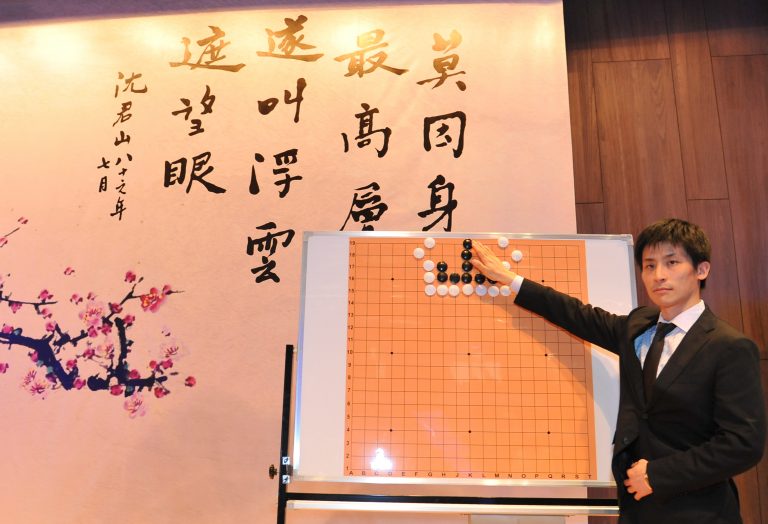 莫因身
最高層
遂叫浮雲
遮望眼
沈君山八十之年
七月
19
18
17
16
15
14
13
12
11
10
9
8
7
6
5
4
3
2
1
A B C D E F G H J K L M N O P Q R S T